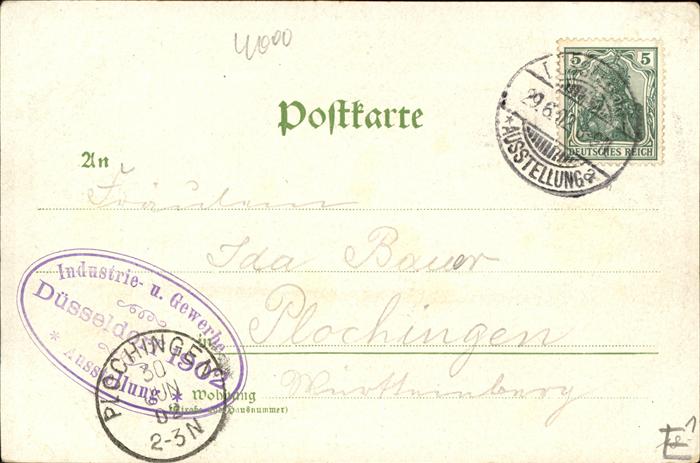 4000
5 5
DEUTSCHES REICH
29.6.02
* AUSSTELLUNG * a
Postkarte
An
Fräulein
Ida Bauer
in Plochingen
Württemberg
Wohnung
(Straße und Hausnummer)
Industrie- u. Gewerbe
Düsseldorf 1902
* Ausstellung *
PLOCHINGEN
30
JUN
02
2-3N